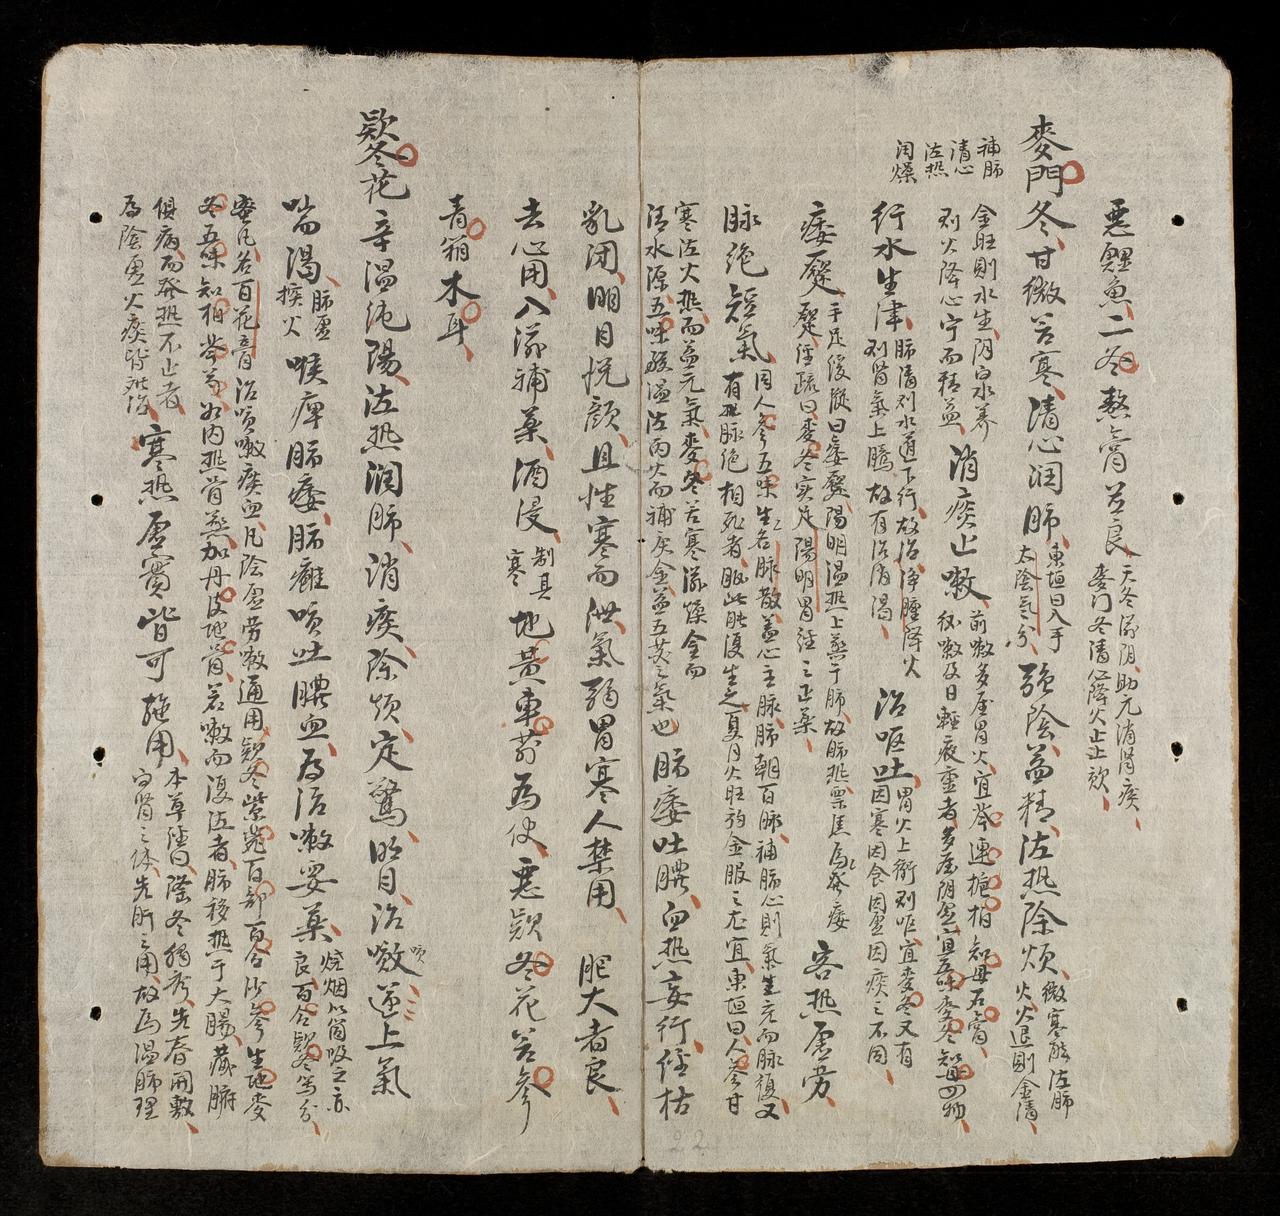 惡鯉魚二冬熬膏並良
天冬滋阴助元消腎痰
麥门冬清心降火止上欬
麥門冬甘微苦寒清心润肺
東垣曰入手
太陰氣分
強陰益精泻热除烦
微寒能泻肺
火火退則金清
補肺
清心
泻热
润燥
金旺則水生阴得水养
則火降心宁而精益
消痰止嗽
前嗽多屬胃火宜芩連梔柏知母石膏
後嗽及日輕夜重者多屬阴虚宜五味麥冬知母四物
行水生津
肺清則水道下行故治浮腫降火
則腎氣上騰故有治消渴
治呕吐
胃火上衝則呕宜麥冬又有
因寒因食因虚因痰之不同
痿躄
手足缓縱曰痿躄陽明濕热上蒸于肺故肺热葉焦而發痿
躄經疏曰麥冬实足陽明胃經之正药
客热虚劳
脉绝短氣
同人參五味生名脉散盖心主脉肺朝百脉補肺心則氣生充而脉復又
有热脉绝相死者服此能復生之夏月火旺尅金服之尤宜東垣曰人參甘
寒泻火热而益元氣麥冬苦寒滋燥金而
清水源五味酸温泻丙火而補庚金益五臟之氣也
肺痿吐膿血热妄行经枯
乳闭明目悦颜且性寒而泄氣弱胃寒人禁用
肥大者良
去心用入滋補药酒浸
制其
寒
地黄車前為使惡欵冬花苦參
青箱木耳
欵冬花辛温纯陽泻热润肺消痰除烦定驚明目治嗽逆上氣
咳
喘渴
肺虚
挾火
喉痺肺痿肺癰咳吐膿血為治嗽要药
燒烟以筒吸之亦
良百合欵冬等分
蜜丸名百花膏治咳嗽痰血凡陰虚劳嗽通用欵冬紫菀百部百合沙參生地麥
冬五味知柏芩芍如内热骨蒸加丹皮地骨若嗽而復泻者肺移热于大腸臟腑
俱病而發热不止者
為陰虚火痰皆难治
寒热虚實皆可施用
本草经曰隆冬獨秀先春開敷